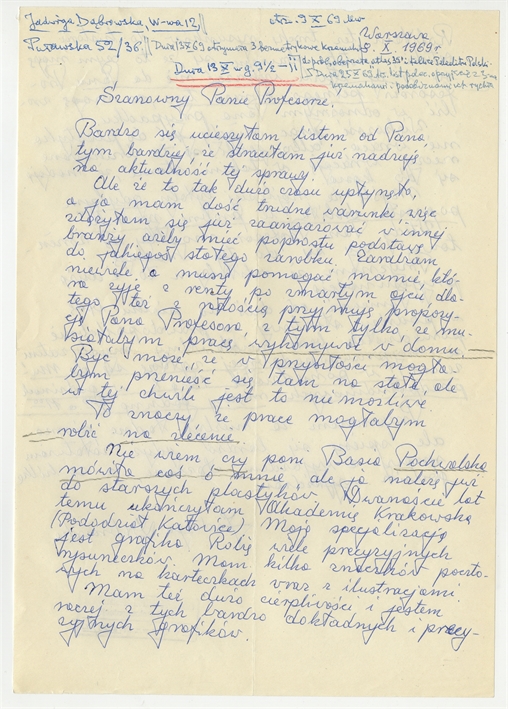 Jadwiga Dąbrowska, W-wa 12
Puławska 52/36.
otrz. 9 X 69
Dnia 13 X 69 otrzyma 3
Warszawa
8. X. 1969 r
Dnia 13 X w g. 9½ – 11
Dnia 25 X 69
Szanowny Panie Profesorze.
Bardzo się ucieszyłam listem od Pana
tym bardziej, że straciłam już nadzieję
na aktualność tej sprawy.
Ale że to tak dużo czasu upłynęło,
a ja mam dość trudne warunki więc
zdążyłam się już zaangażować w innej
branży ażeby mieć poprostu podstawę
do jakiegoś stałego zarobku. Zarabiam
niewiele a muszę pomagać mamie, któ-
ra żyje z renty po zmarłym ojcu, dla-
tego też z radością przyjmuję propozy-
cję Pana Profesora, z tym tylko, że mu-
siałabym pracę wykonywać w domu.
Być może, że w przyszłości mogła-
bym przenieść się tam na stałe, ale
w tej chwili jest to niemożliwe.
To znaczy, że prace mogłabym
robić na zlecenie.
Nie wiem czy pani Basia Pochwalska
mówiła coś o mnie, ale ja należę już
do starszych plastyków. Dwanaście lat
temu ukończyłam Akademię Krakowską
(Pododdział Katowice). Moją specjalizacją
jest grafika. Robię wiele precyzyjnych
rysuneczków. Mam kilka znaczków poczto-
wych na karteczkach wraz z ilustracjami.
Mam też dużo cierpliwości i jestem
raczej z tych bardzo dokładnych i precy-
zyjnych grafików.